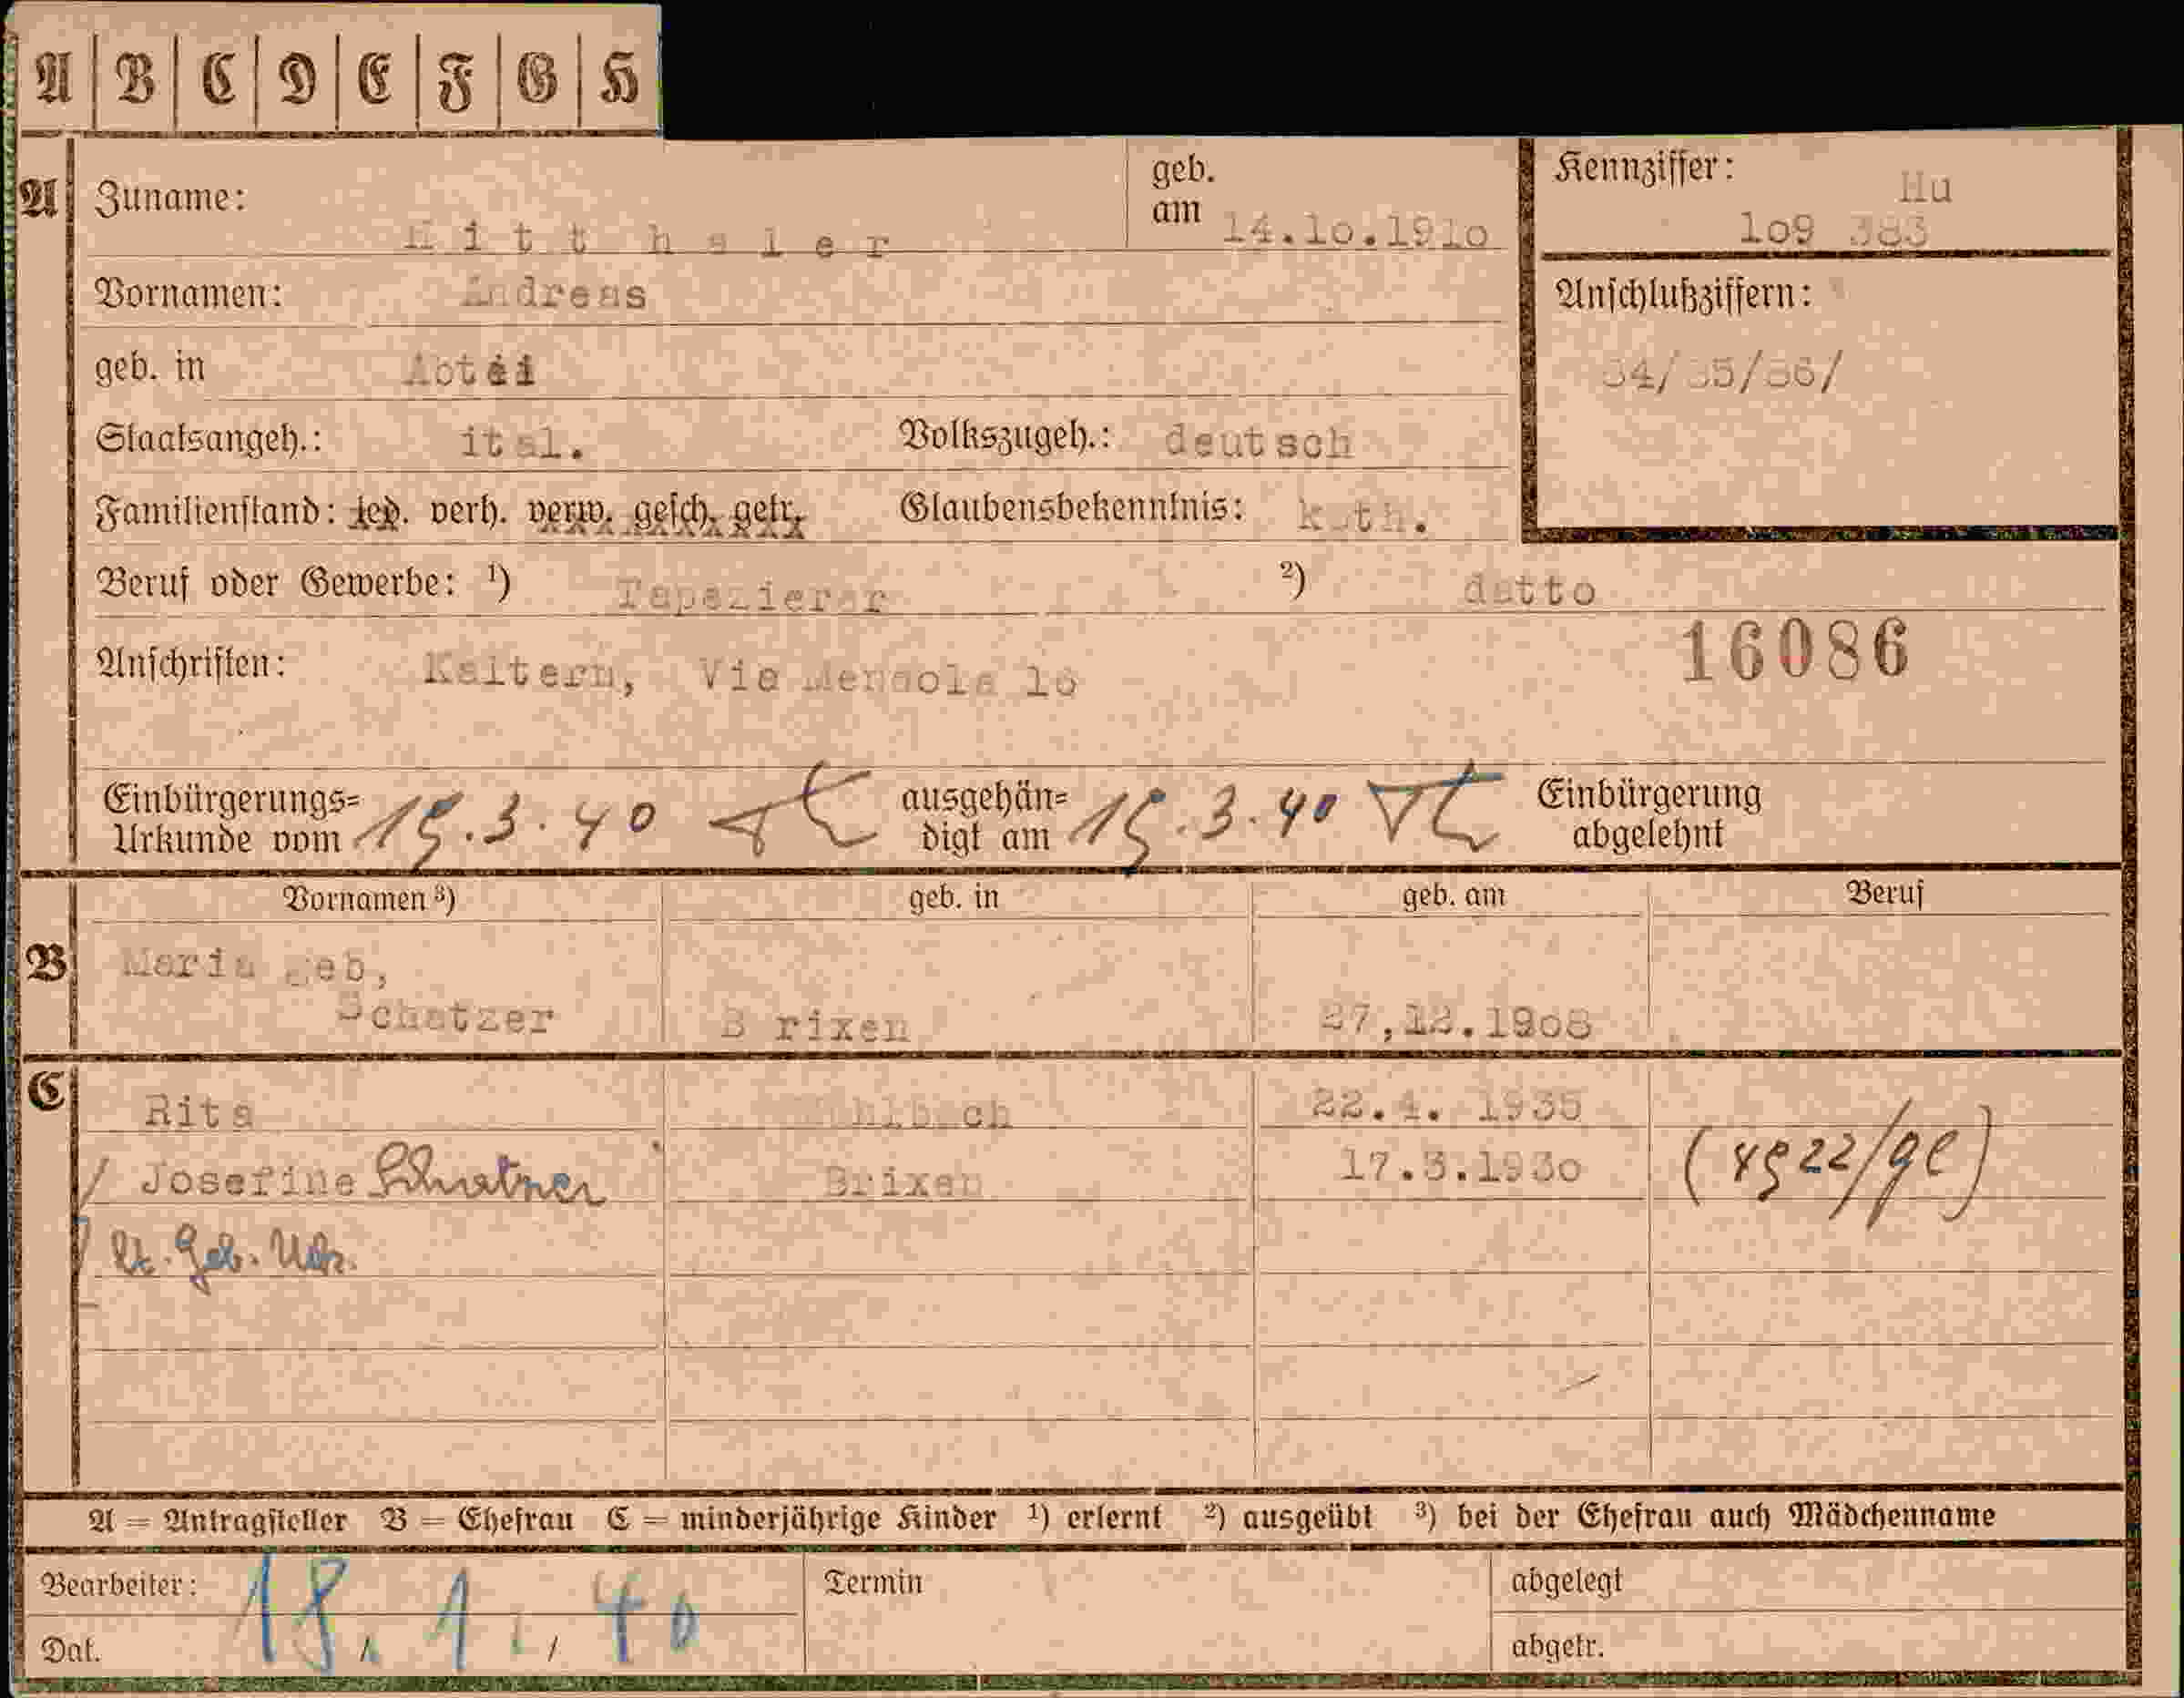 A B C D E F G H
A Zuname: Mitthaler geb. am 14.10.1910
Kennziffer: Hu
109 383
Vornamen: Andreas
Anschlußziffern:
84/85/86/
geb. in Abtei
Staatsangeh.: ital. Volkszugeh.: deutsch
Familienstand: led. verh. verw. gesch. getr. Glaubensbekenntnis: kath.
Beruf oder Gewerbe: 1) Tapezierer 2) detto
16086
Anschriften: Kaltern, Via
Einbürgerungs=
Urkunde vom 15.3.40
ausgehän=
digt am 15.3.40
Einbürgerung
abgelehnt
Vornamen 3) geb. in geb. am Beruf
B Maria geb,
Schatzer B rixen 27,12.1908
C Rita Mühlbach 22.4. 1935
Josefine Brixen 17.3.1930
Geb.
A = Antragsteller B = Ehefrau C = minderjährige Kinder 1) erlernt 2) ausgeübt 3) bei der Ehefrau auch Mädchenname
Bearbeiter: Termin abgelegt
Dat. 18. 1. 40 abgetr.